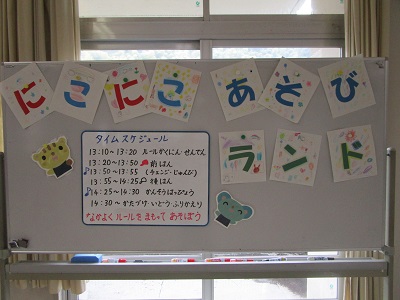 にこにこあそび
ランド
タイムスケジュール
13:10〜13:20 ルールかくにん・せんでん
13:20〜13:50 前はん
13:50〜13:55 (チェンジ・じゅんび)
13:55〜14:25 後はん
14:25〜14:30 かんそうはっぴょう
14:30〜かたづけ・いどう・ふりかえり
なかよく ルールを まもって あそぼう